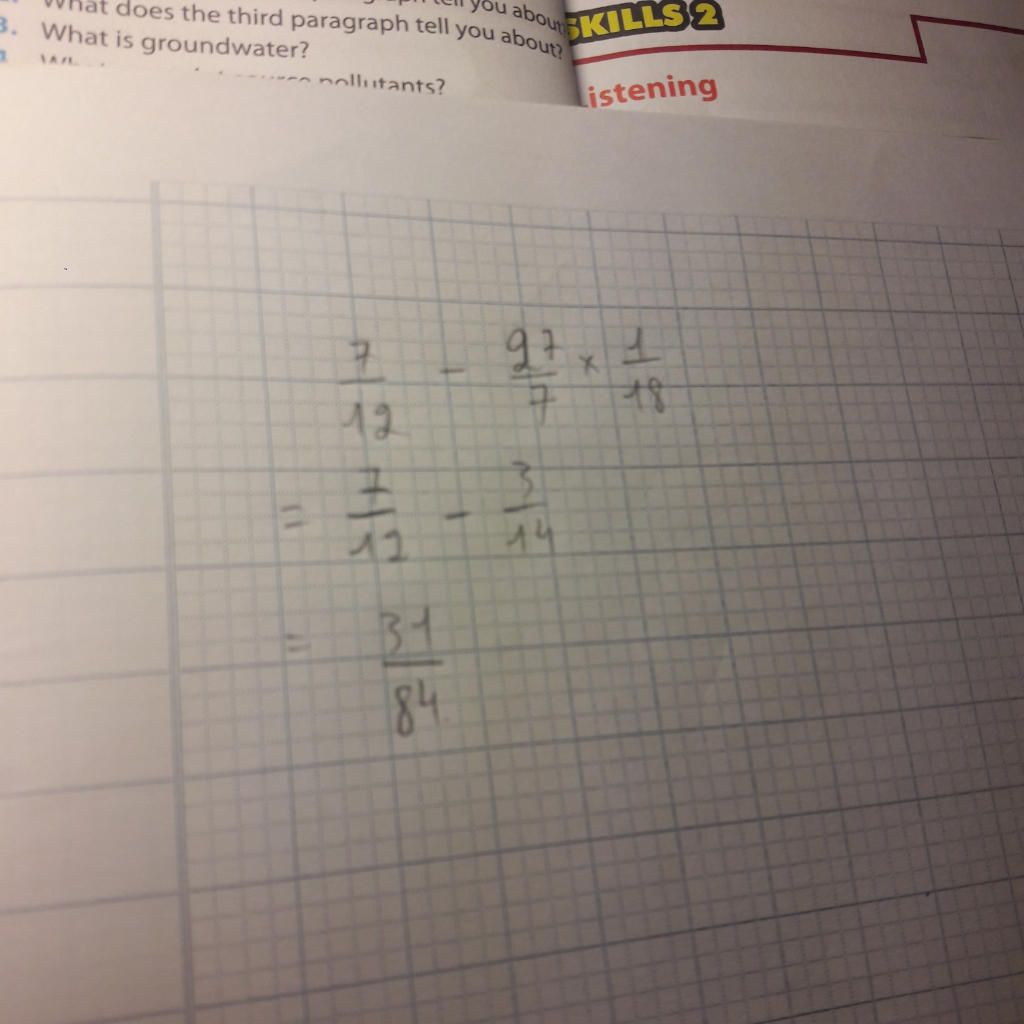 What does the third paragraph tell you about?
3. What is groundwater?
pollutants?
SKILLS 2
istening
7/12 - 27/7 × 1/18
= 7/12 - 3/14
= 31/84